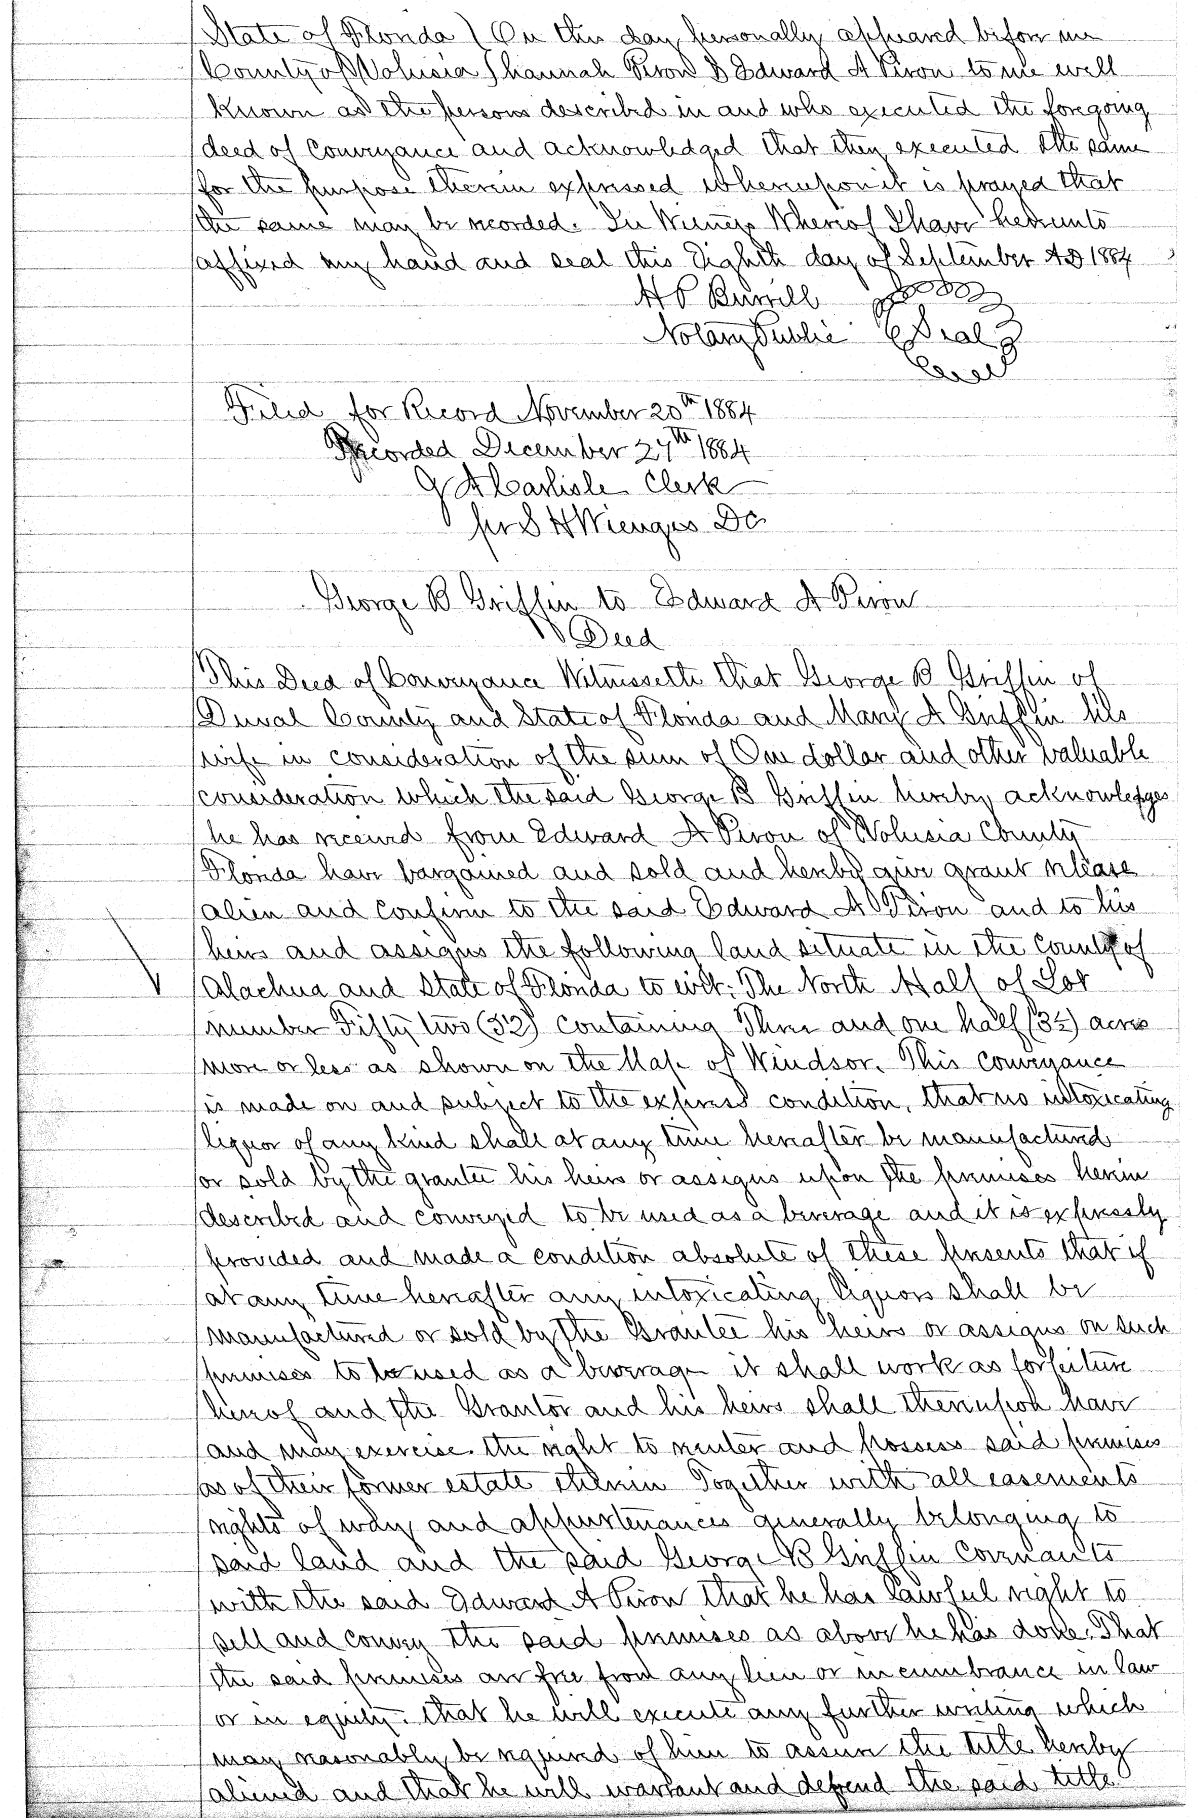 State of Florida } On this day personally appeared before me
County of Volusia } hannah Piron & Edward A Piron to me well
known as the persons described in and who executed the foregoing
deed of Conveyance and acknowledged that they executed the same
for the purpose therein expressed whereupon it is prayed that
the same may be recorded. In Witness Whereof I have hereunto
affixed my hand and seal this Eighth day of September AD 1884
H P Burrill
Notary Public Seal
Filed for Record November 20th 1884
Recorded December 27th 1884
Carlisle Clerk
per S H Wienges DC
George B Griffin to Edward A Piron
Deed
This Deed of Conveyance Witnesseth that George B Griffin of
Duval County and State of Florida and Mary A Griffin his
wife in consideration of the sum of One dollar and other valuable
consideration which the said George B Griffin hereby acknowledges
he has received from Edward A Piron of Volusia County
Florida have bargained and sold and hereby give grant release
alien and confirm to the said Edward A Piron and to his
heirs and assigns the following land situate in the county of
Alachua and State of Florida to wit: The North Half of Lot
number Fifty two (52) containing Three and one half (3½) acres
more or less as shown on the Map of Windsor. This conveyance
is made on and subject to the express condition, that no intoxicating
liquor of any kind shall at any time hereafter be manufactured
or sold by the grantee his heirs or assigns upon the premises herein
described and conveyed to be used as a beverage and it is expressly
provided and made a condition absolute of these presents that if
at any time hereafter any intoxicating liquors shall be
manufactured or sold by the Grantee his heirs or assigns on such
premises to be used as a beverage it shall work as forfeiture
hereof and the Grantor and his heirs shall thereupon have
and may exercise the right to reenter and possess said premises
as of their former estate therein Together with all easements
rights of way and appurtenances generally belonging to
said land and the said George B Griffin Covenants
with the said Edward A Piron that he has lawful right to
sell and convey the said premises as above he has done. That
the said premises are free from any lien or incumbrance in law
or in equity. that he will execute any further writing which
may reasonably be required of him to assure the title hereby
aliened and that he will warrant and defend the said title